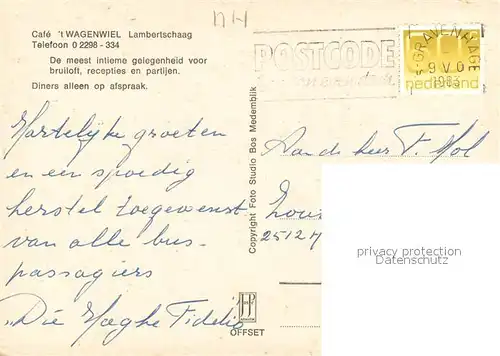 NH
Café 't WAGENWIEL Lambertschaag
Telefoon 0 2298 - 334
De meest intieme gelegenheid voor
bruiloft, recepties en partijen.
Diners alleen op afspraak.
POSTCODE
'S-GRAVENHAGE
9 V 0
1983
nederland
Hartelijke groeten
en een spoedig
herstel toegewenst
van alle bus-
passagiers
"Die Haeghe Fidelio
Copyright Foto Studio Bos Medemblik
JP
OFFSET
Aan de heer F. Mol
2512 H
privacy protection
Datenschutz